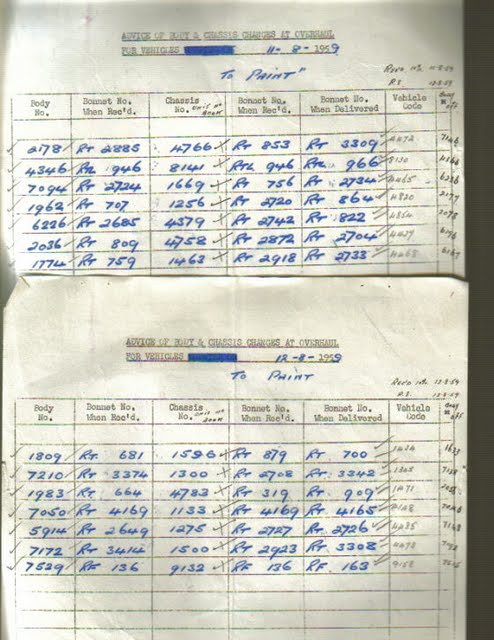 ADVICE OF BODY & CHASSIS CHANGES AT OVERHAUL
FOR VEHICLES 11-8-1959
To PAINT"
Body No. Bonnet No. When Rec'd. Chassis No. Bonnet No. When Rec'd. Bonnet No. When Delivered Vehicle Code
2178 RT 2885 4766 RT 853 RT 3309 4472
4346 RTL 946 8141 RTL 946 RTL 966 8130
7094 RT 2724 1669 RT 756 RT 2734 4465
1962 RT 707 1256 RT 2720 RT 864 4820
6226 RT 2685 4379 RT 2742 RT 822 4364
2036 RT 809 4758 RT 2872 RT 2704 4439
1774 RT 759 1463 RT 2918 RT 2733 4468
ADVICE OF BODY & CHASSIS CHANGES AT OVERHAUL
FOR VEHICLES 12-8-1959
To PAINT
Body No. Bonnet No. When Rec'd. Chassis No. Bonnet No. When Rec'd. Bonnet No. When Delivered Vehicle Code
1809 RT 681 1596 RT 879 RT 700
7210 RT 3374 1300 RT 2708 RT 3242
1983 RT 664 4783 RT 319 RT 909 1471
7050 RT 4169 1133 RT 4169 RT 4165
5914 RT 2649 1275 RT 2727 RT 2726 4435
7172 RT 3414 1500 RT 2923 RT 3308 4473
7529 RF 136 9132 RF 136 RF 163 9158